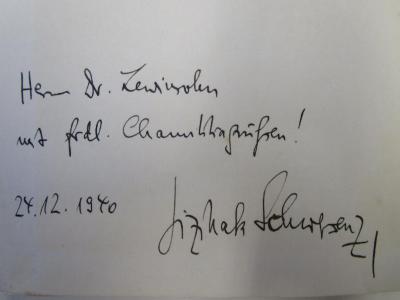 Herrn Dr. Lewinsohn
mit frdl. Chanukkagrüßen!
24.12.1940
Jizchak Schwersenz